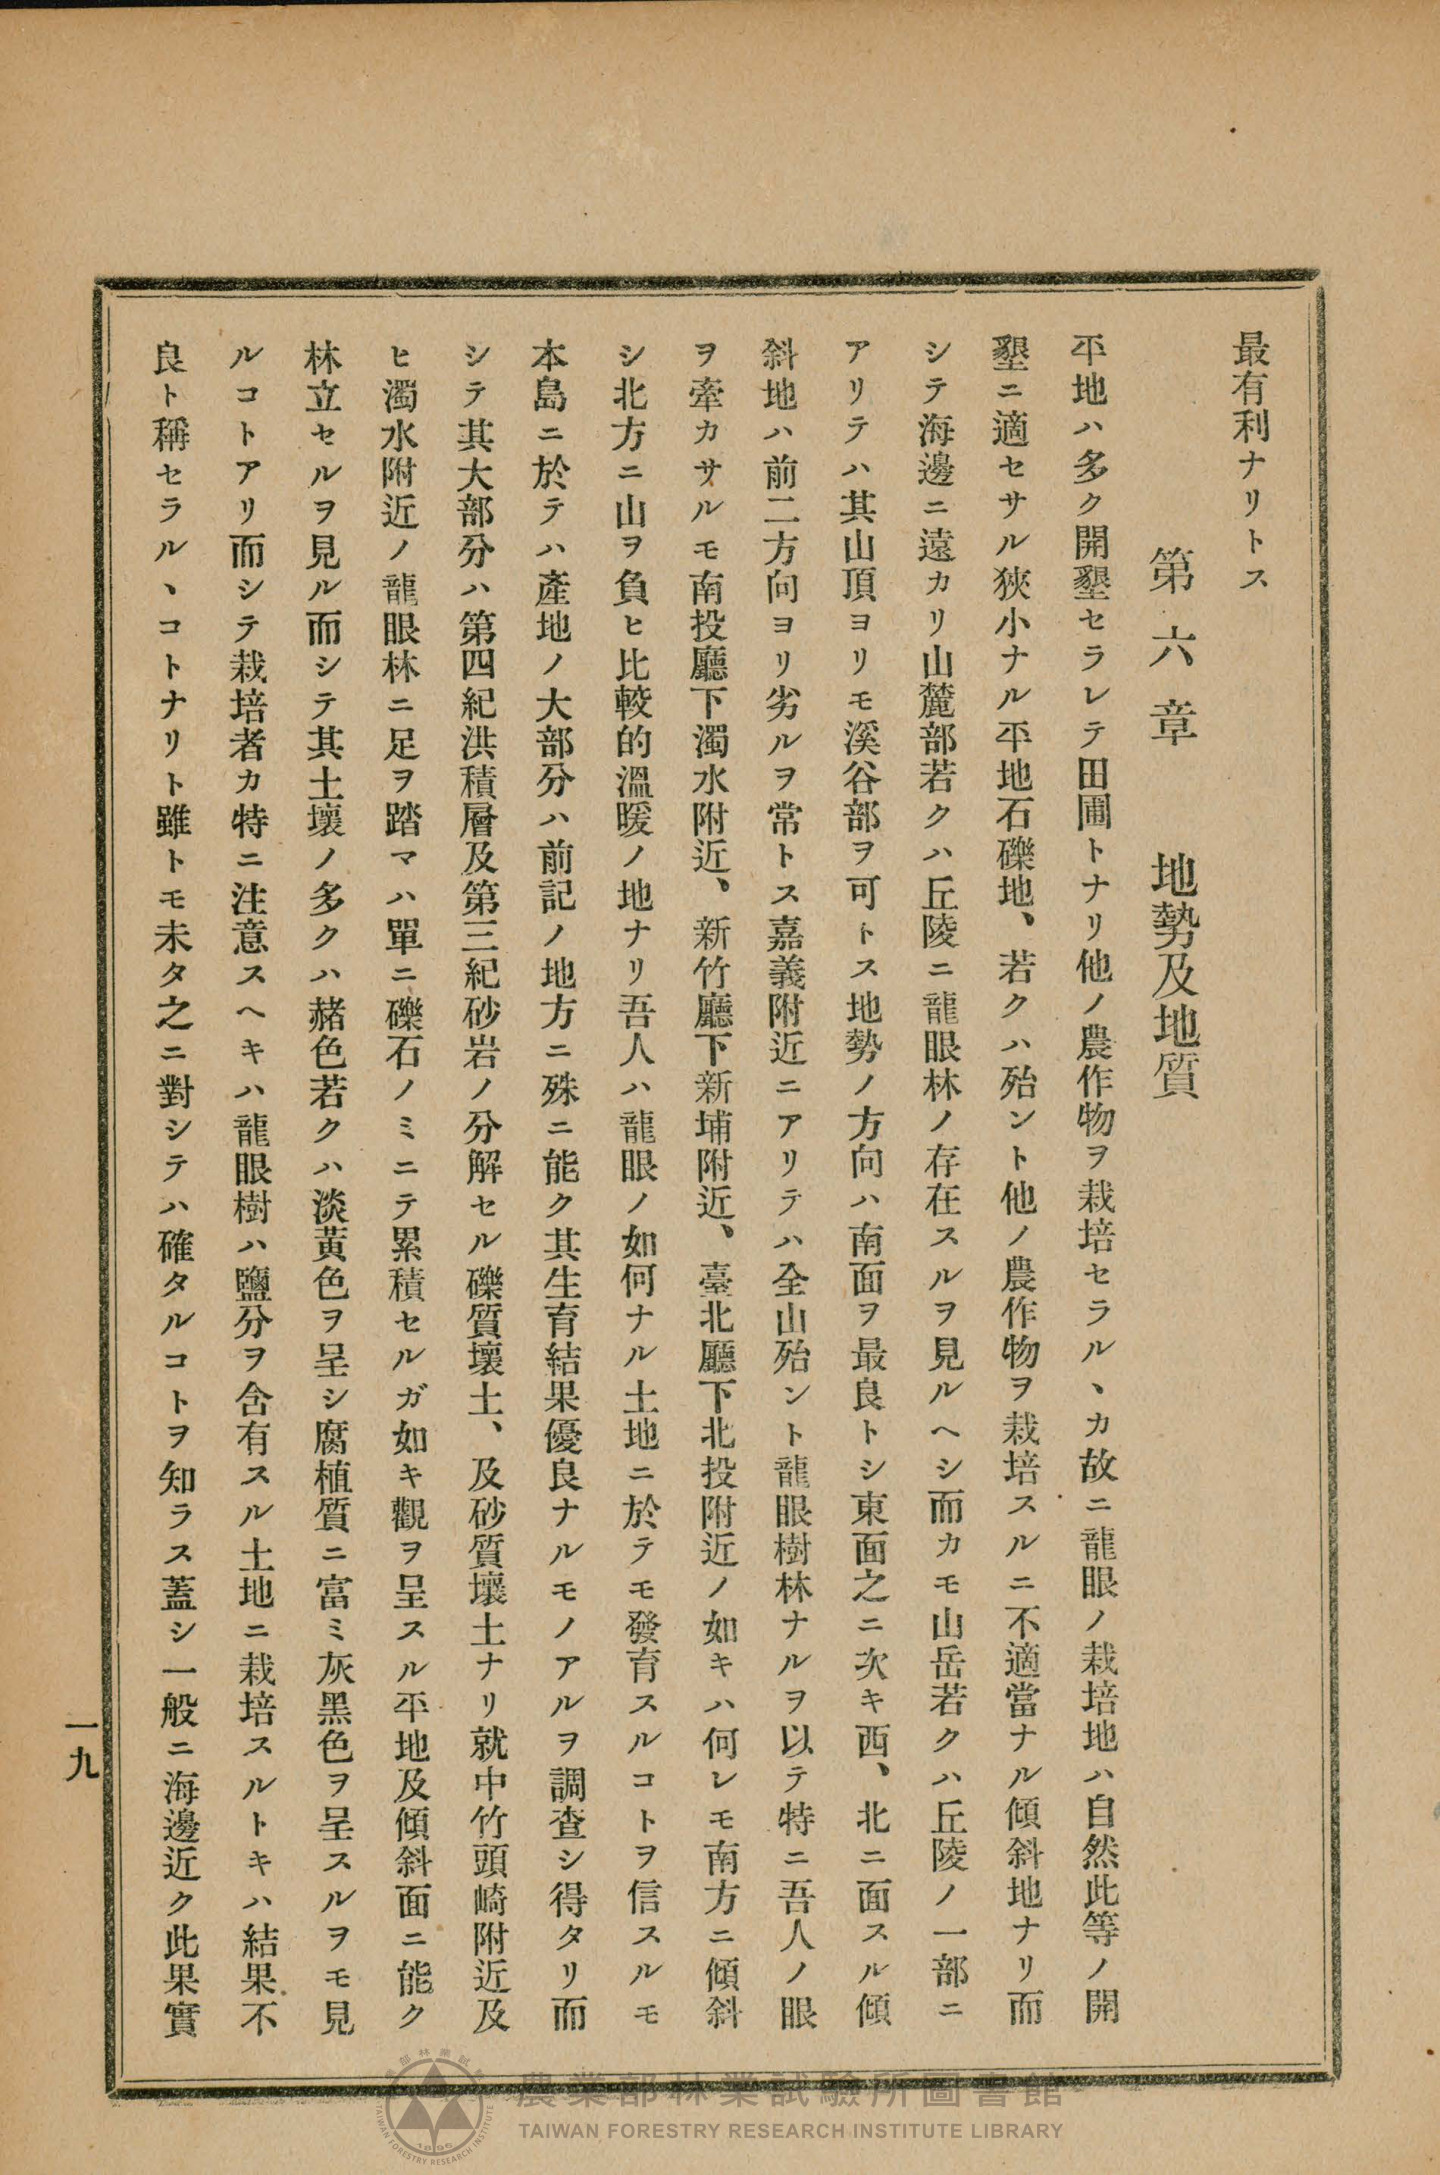 最有利ナリトス
第六章　地勢及地質
平地ハ多ク開墾セラレテ田圃トナリ他ノ農作物ヲ栽培セラル、カ故ニ龍眼ノ栽培地ハ自然此等ノ開
墾ニ適セサル狹小ナル平地石礫地、若クハ殆ント他ノ農作物ヲ栽培スルニ不適當ナル傾斜地ナリ而
シテ海邊ニ遠カリ山麓部若クハ丘陵ニ龍眼林ノ存在スルヲ見ルヘシ而カモ山岳若クハ丘陵ノ一部ニ
アリテハ其山頂ヨリモ溪谷部ヲ可トス地勢ノ方向ハ南面ヲ最良トシ東面之ニ次キ西、北ニ面スル傾
斜地ハ前二方向ヨリ劣ルヲ常トス嘉義附近ニアリテハ全山殆ント龍眼樹林ナルヲ以テ特ニ吾人ノ眼
ヲ牽カサルモ南投廳下濁水附近、新竹廳下新埔附近、臺北廳下北投附近ノ如キハ何レモ南方ニ傾斜
シ北方ニ山ヲ負ヒ比較的溫暖ノ地ナリ吾人ハ龍眼ノ如何ナル土地ニ於テモ發育スルコトヲ信スルモ
本島ニ於テハ產地ノ大部分ハ前記ノ地方ニ殊ニ能ク其生育結果優良ナルモノアルヲ調查シ得タリ而
シテ其大部分ハ第四紀洪積層及第三紀砂岩ノ分解セル礫質壤土、及砂質壤土ナリ就中竹頭崎附近及
ヒ濁水附近ノ龍眼林ニ足ヲ踏マハ單ニ礫石ノミニテ累積セルガ如キ觀ヲ呈スル平地及傾斜面ニ能ク
林立セルヲ見ル而シテ其土壤ノ多クハ赭色若クハ淡黃色ヲ呈シ腐植質ニ富ミ灰黑色ヲ呈スルヲモ見
ルコトアリ而シテ栽培者カ特ニ注意スヘキハ龍眼樹ハ鹽分ヲ含有スル土地ニ栽培スルトキハ結果不
良ト稱セラル、コトナリト雖トモ未タ之ニ對シテハ確タルコトヲ知ラス蓋シ一般ニ海邊近ク此果實
一九
農業部林業試驗所圖書館
TAIWAN FORESTRY RESEARCH INSTITUTE LIBRARY